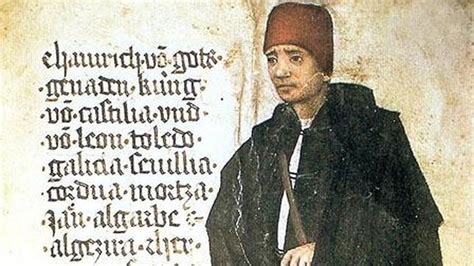 hainrich · vō · gots ·
genaden · küng ·
vō · castilia · vnd ·
vō · leon · toledo ·
galicia · seuillia ·
cordua · mortza ·
algarbe ·
algezira ·